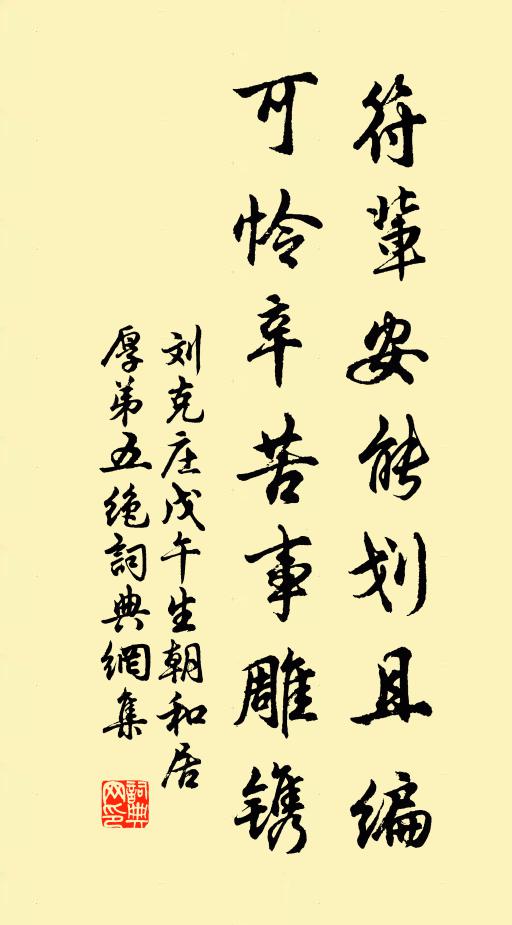 符輩安能划且编
可怜辛苦事雕镌
刘克庄戊午生朝和居
厚弟五绝詞典網集
詞典网印